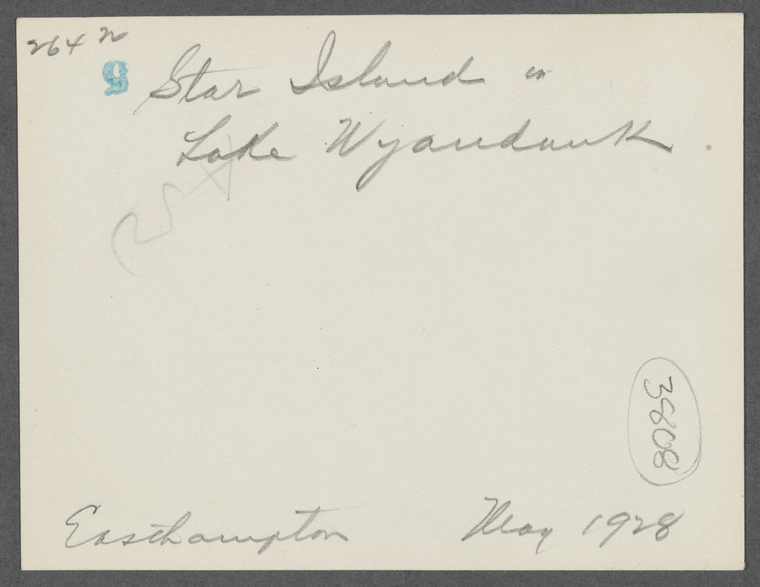 264
Star Island in
Lake Wyandank.
3808
Easthampton May 1928